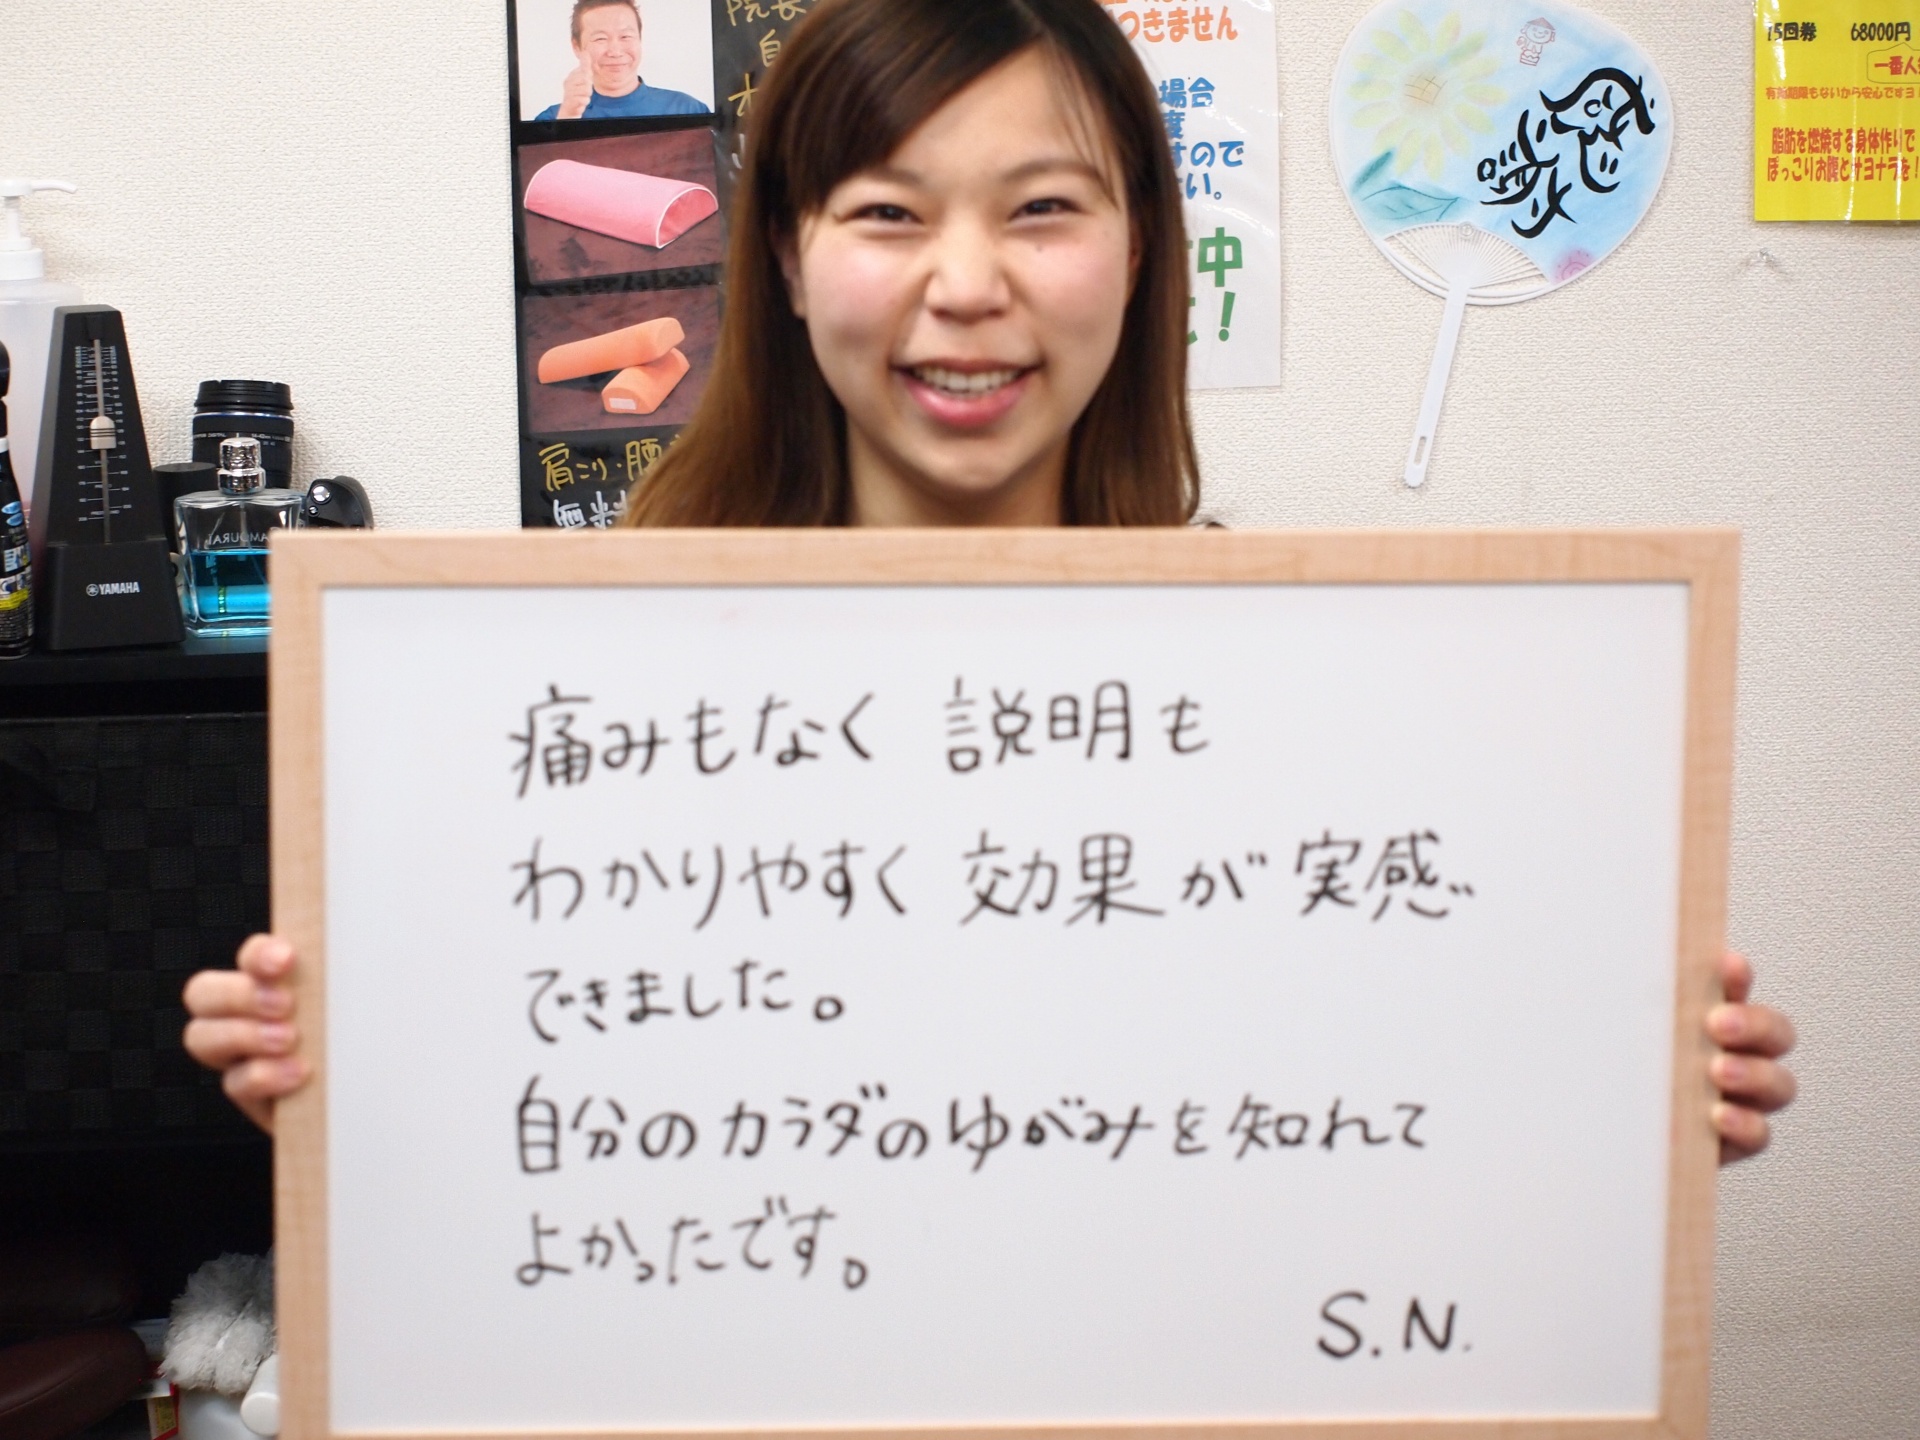 つきません
場合
度
すので
い。
中
！
15回券 68000円
一番人
有効期限もないから安心ですヨ！
脂肪を燃焼する身体作りで
ぽっこりお腹とサヨナラを！
肩こり・腰
無料
YAMAHA
痛みもなく 説明も
わかりやすく 効果が実感
できました。
自分のカラダのゆがみを知れて
よかったです。
S.N.